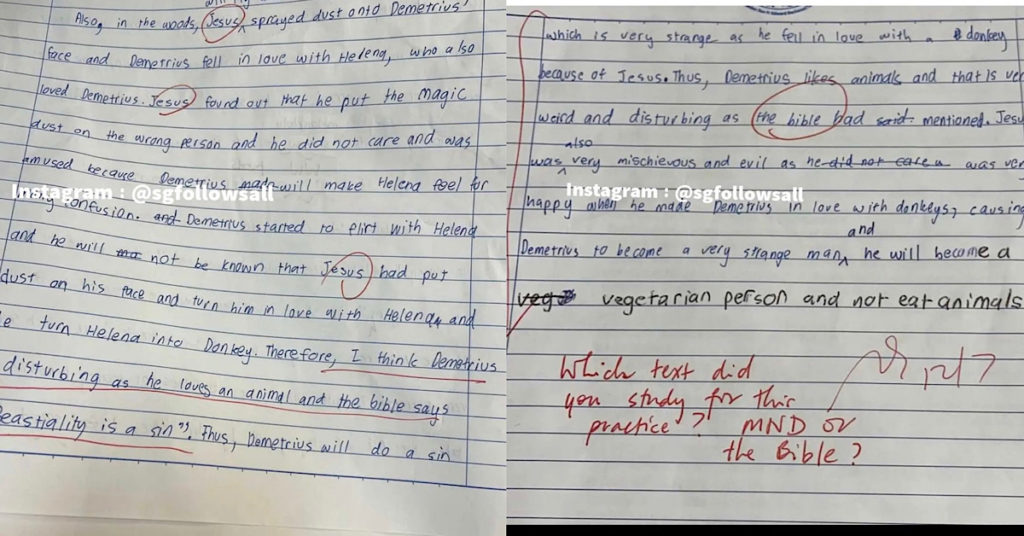 Also, in the woods, Jesus ^ sprayed dust onto Demetrius'
face and Demetrius fell in love with Helena, who also
loved Demetrius. Jesus found out that he put the magic
dust on the wrong person and he did not care and was
amused because Demetrius made will make Helena feel for
confusion. and Demetrius started to flirt with Helena
and he will not be known that Jesus had put
dust on his face and turn him in love with Helena, and
turn Helena into Donkey. Therefore, I think Demetrius
disturbing as he loves an animal and the bible says
Beastiality is a sin". Thus, Demetrius will do a sin
Instagram : @sgfollowsall
which is very strange as he fell in love with a donkey
because of Jesus. Thus, Demetrius likes animals and that is ver
weird and disturbing as the bible had said mentioned. Jesu
also
was ^ very mischievous and evil as he did not care a was ver
Instagram : @sgfollowsall
happy when he made Demetrius in love with donkeys, causing
and
Demetrius to become a very strange man ^ he will become a
vege vegetarian person and not eat animals
Which text did
you study for this
practice? MND or
the Bible?